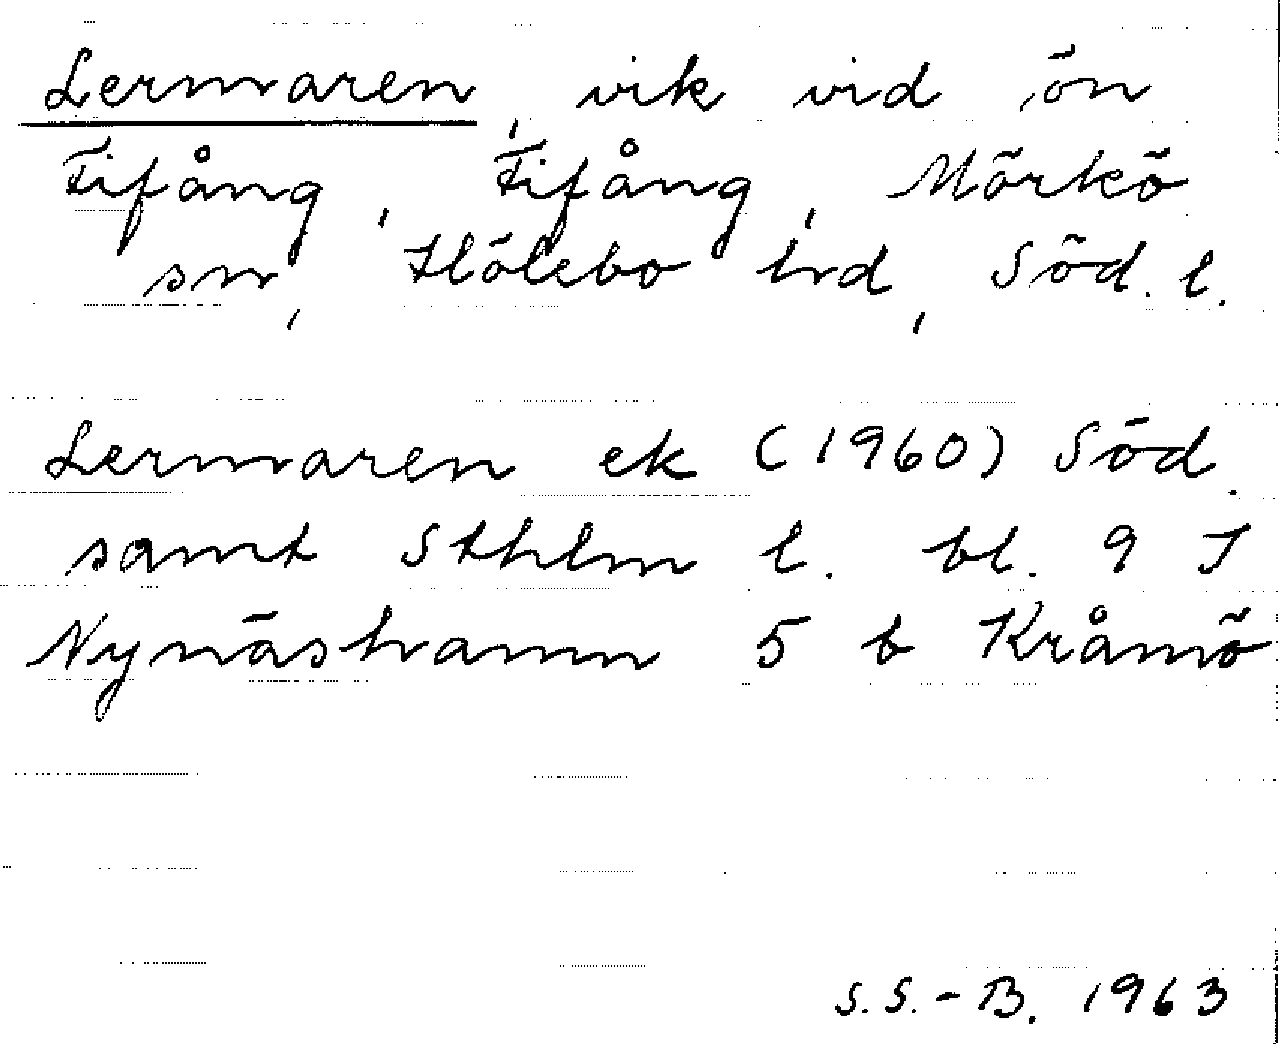 Lermaren, vik vid ön
Fifång, Fifång, Mörkö
sn, Hölebo hrd, Söd. l.
Lermaren ek (1960) Söd.
samt Sthlm l. bl. 9 I
Nynäshamn 5 b Kråmö
S.S.-B. 1963